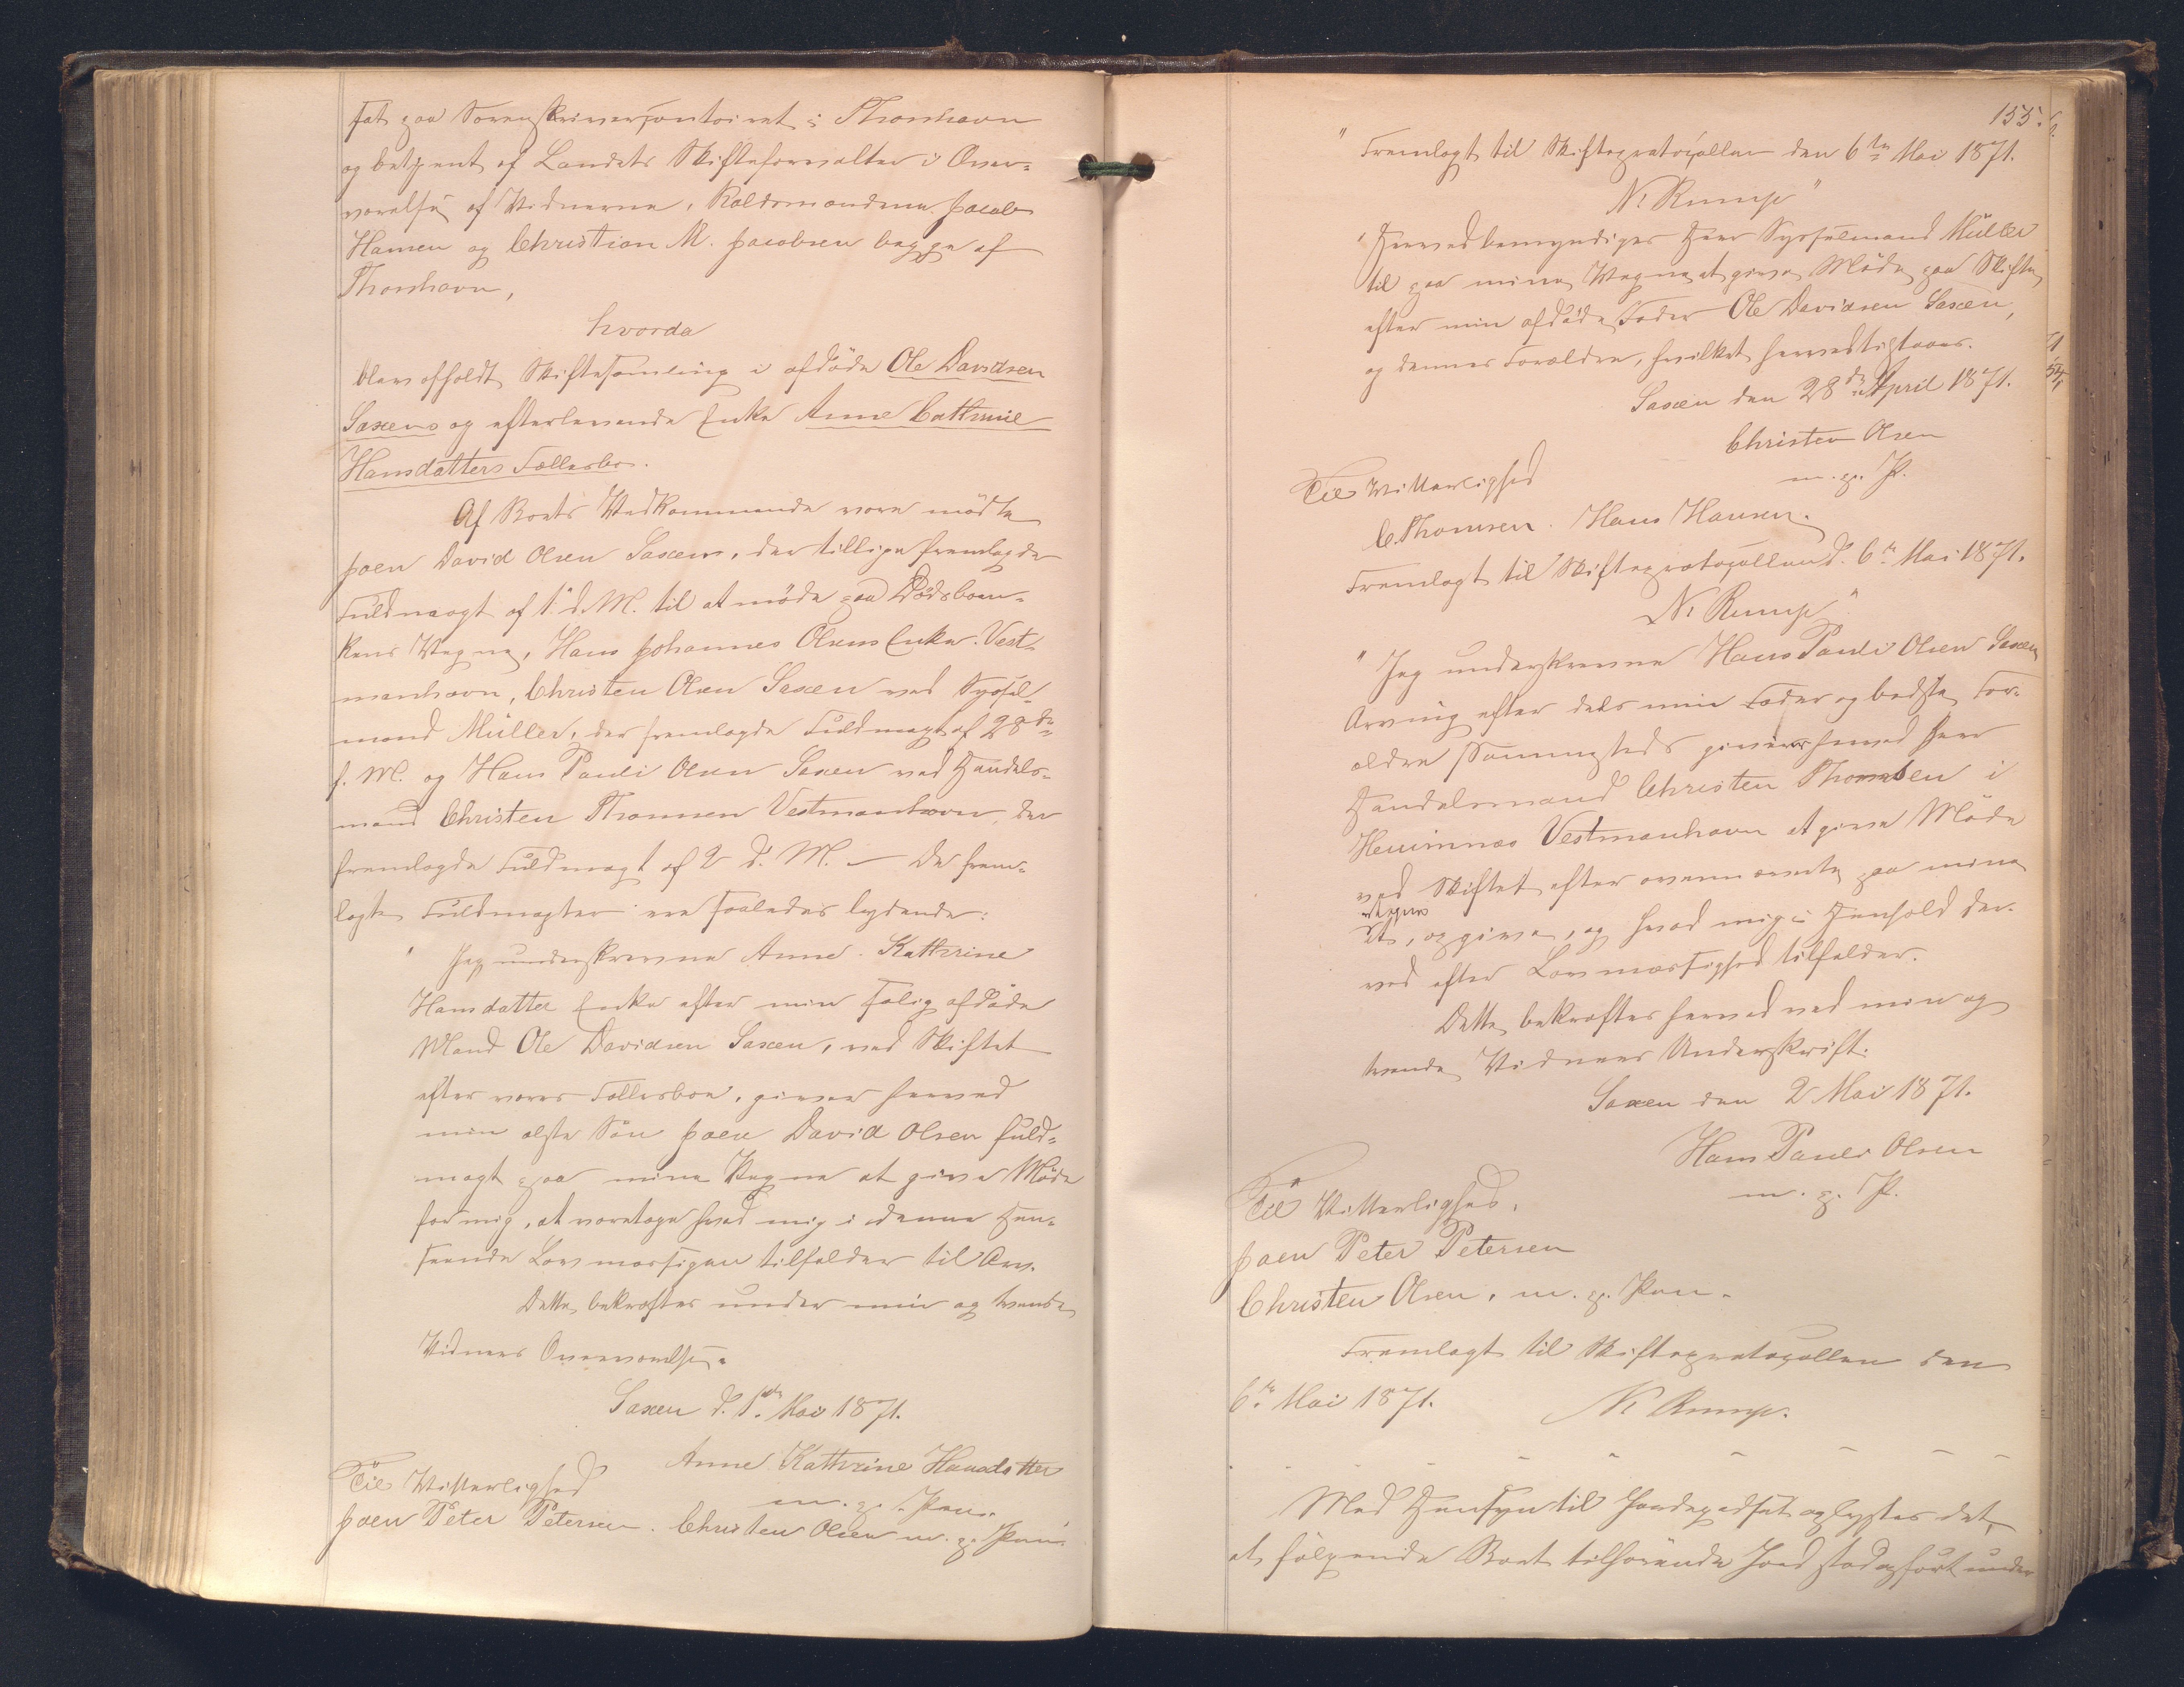 sat paa Sorenskriverkontoiret i Thorshavn
og betjent af Landets Skifteforvalter i Over-
værelse af Vidnerne, Kaldsmændene Jacob
Hansen og Christian M. Jacobsen begge af
Thorshavn,
hvorda
blev afholdt Skiftesamling i afdöde Ole Davidsen
Saxens og efterlevende Enke Anne Cathrine
Hansdatters Fællesbo.
Af Boets Vedkommende vare mödte
Joen David Olsen Saxen, der tillige fremlagde
Fuldmagt af 1 d. M. til at möde paa Dödsboen-
kens Vegne, Hans Johannes Olsens Enke Vest-
manhavn, Christen Olsen Saxen ved Syssel-
mand Müller, der fremlagde Fuldmagt af 28de
f. M. og Hans Pauli Olsen Saxen ved Handels-
mand Christen Thomsen Vestmanhavn, der
fremlagde Fuldmagt af 2 d. M. – De frem-
lagte Fuldmagter ere saaledes lydende:
" Jeg underskrevne Anne Kathrine
Hansdatter Enke efter min salig afdöde
Mand Ole Davidsen Saxen, ved Skiftet
efter vores Fællesboe, giver herved
min ælste Sön Joen David Olsen fuld-
magt paa mine Vegne at give Möde
for mig, at varetage hvad mig i denne Hen-
seende Lovmæssigen tilfalder til Arv.
Dette bekræftes under min og tvende
Vidners Overværelse.
Saxen d. 1ste Mai 1871.
Anne Kathrine Hansdatter
m. p. Pen.
Til Vitterlighed
Joen Peter Petersen. Christen Olsen m. p. Pen.
155.
" Fremlagt til Skifteprotocollen den 6te Mai 1871.
N. Rump"
" Herved bemyndiges Herr Sysselmand Müller
til paa mine Vegne at give Möde paa Skifte
efter min afdöde Fader Ole Davidsen Saxen,
og dennes Forældre, hvilket herved tilstaaes.
Saxen den 28de April 1871.
Christen Olsen
m. p. P.
Til Vitterlighed
C. Thomsen. Hans Hansen.
Fremlagt til Skifteprotocollen d. 6te Mai 1871.
N. Rump"
" Jeg underskrevne Hans Pauli Olsen Saxen
Arving efter dels min Fader og bedste For-
ældre sammesteds giver herved Herr
Handelsmand Christen Thomsen i
Vestmanhavn at give Möde
ved Skiftet efter ovennævnte paa mine
Vegne
at, og give, og hvad mig i Henhold der-
ved efter Lovmæssighed tilfalder.
Dette bekræftes herved ved min og
tvende Vidners Underskrift.
Saxen den 2 Mai 1871.
Hans Pauli Olsen
m. p. P.
Til Vitterlighed.
Joen Peter Petersen
Christen Olsen, m. p. Pen.
Fremlagt til Skifteprotocollen den
6te Mai 1871. N. Rump.
Med Hensyn til oplystes det,
at fölgende Boet tilhörende Jord stod opfört under